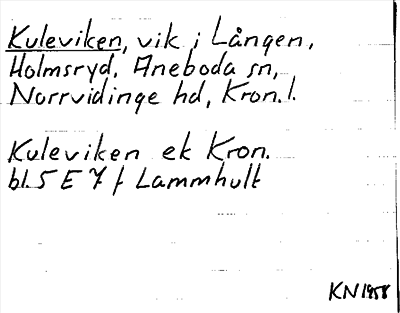 Kuleviken, vik i Lången,
Holmsryd. Aneboda sn,
Norrvidinge hd, Kron. l.
Kuleviken ek Kron.
bl. 5 E 7 f Lammhult
KN 1958